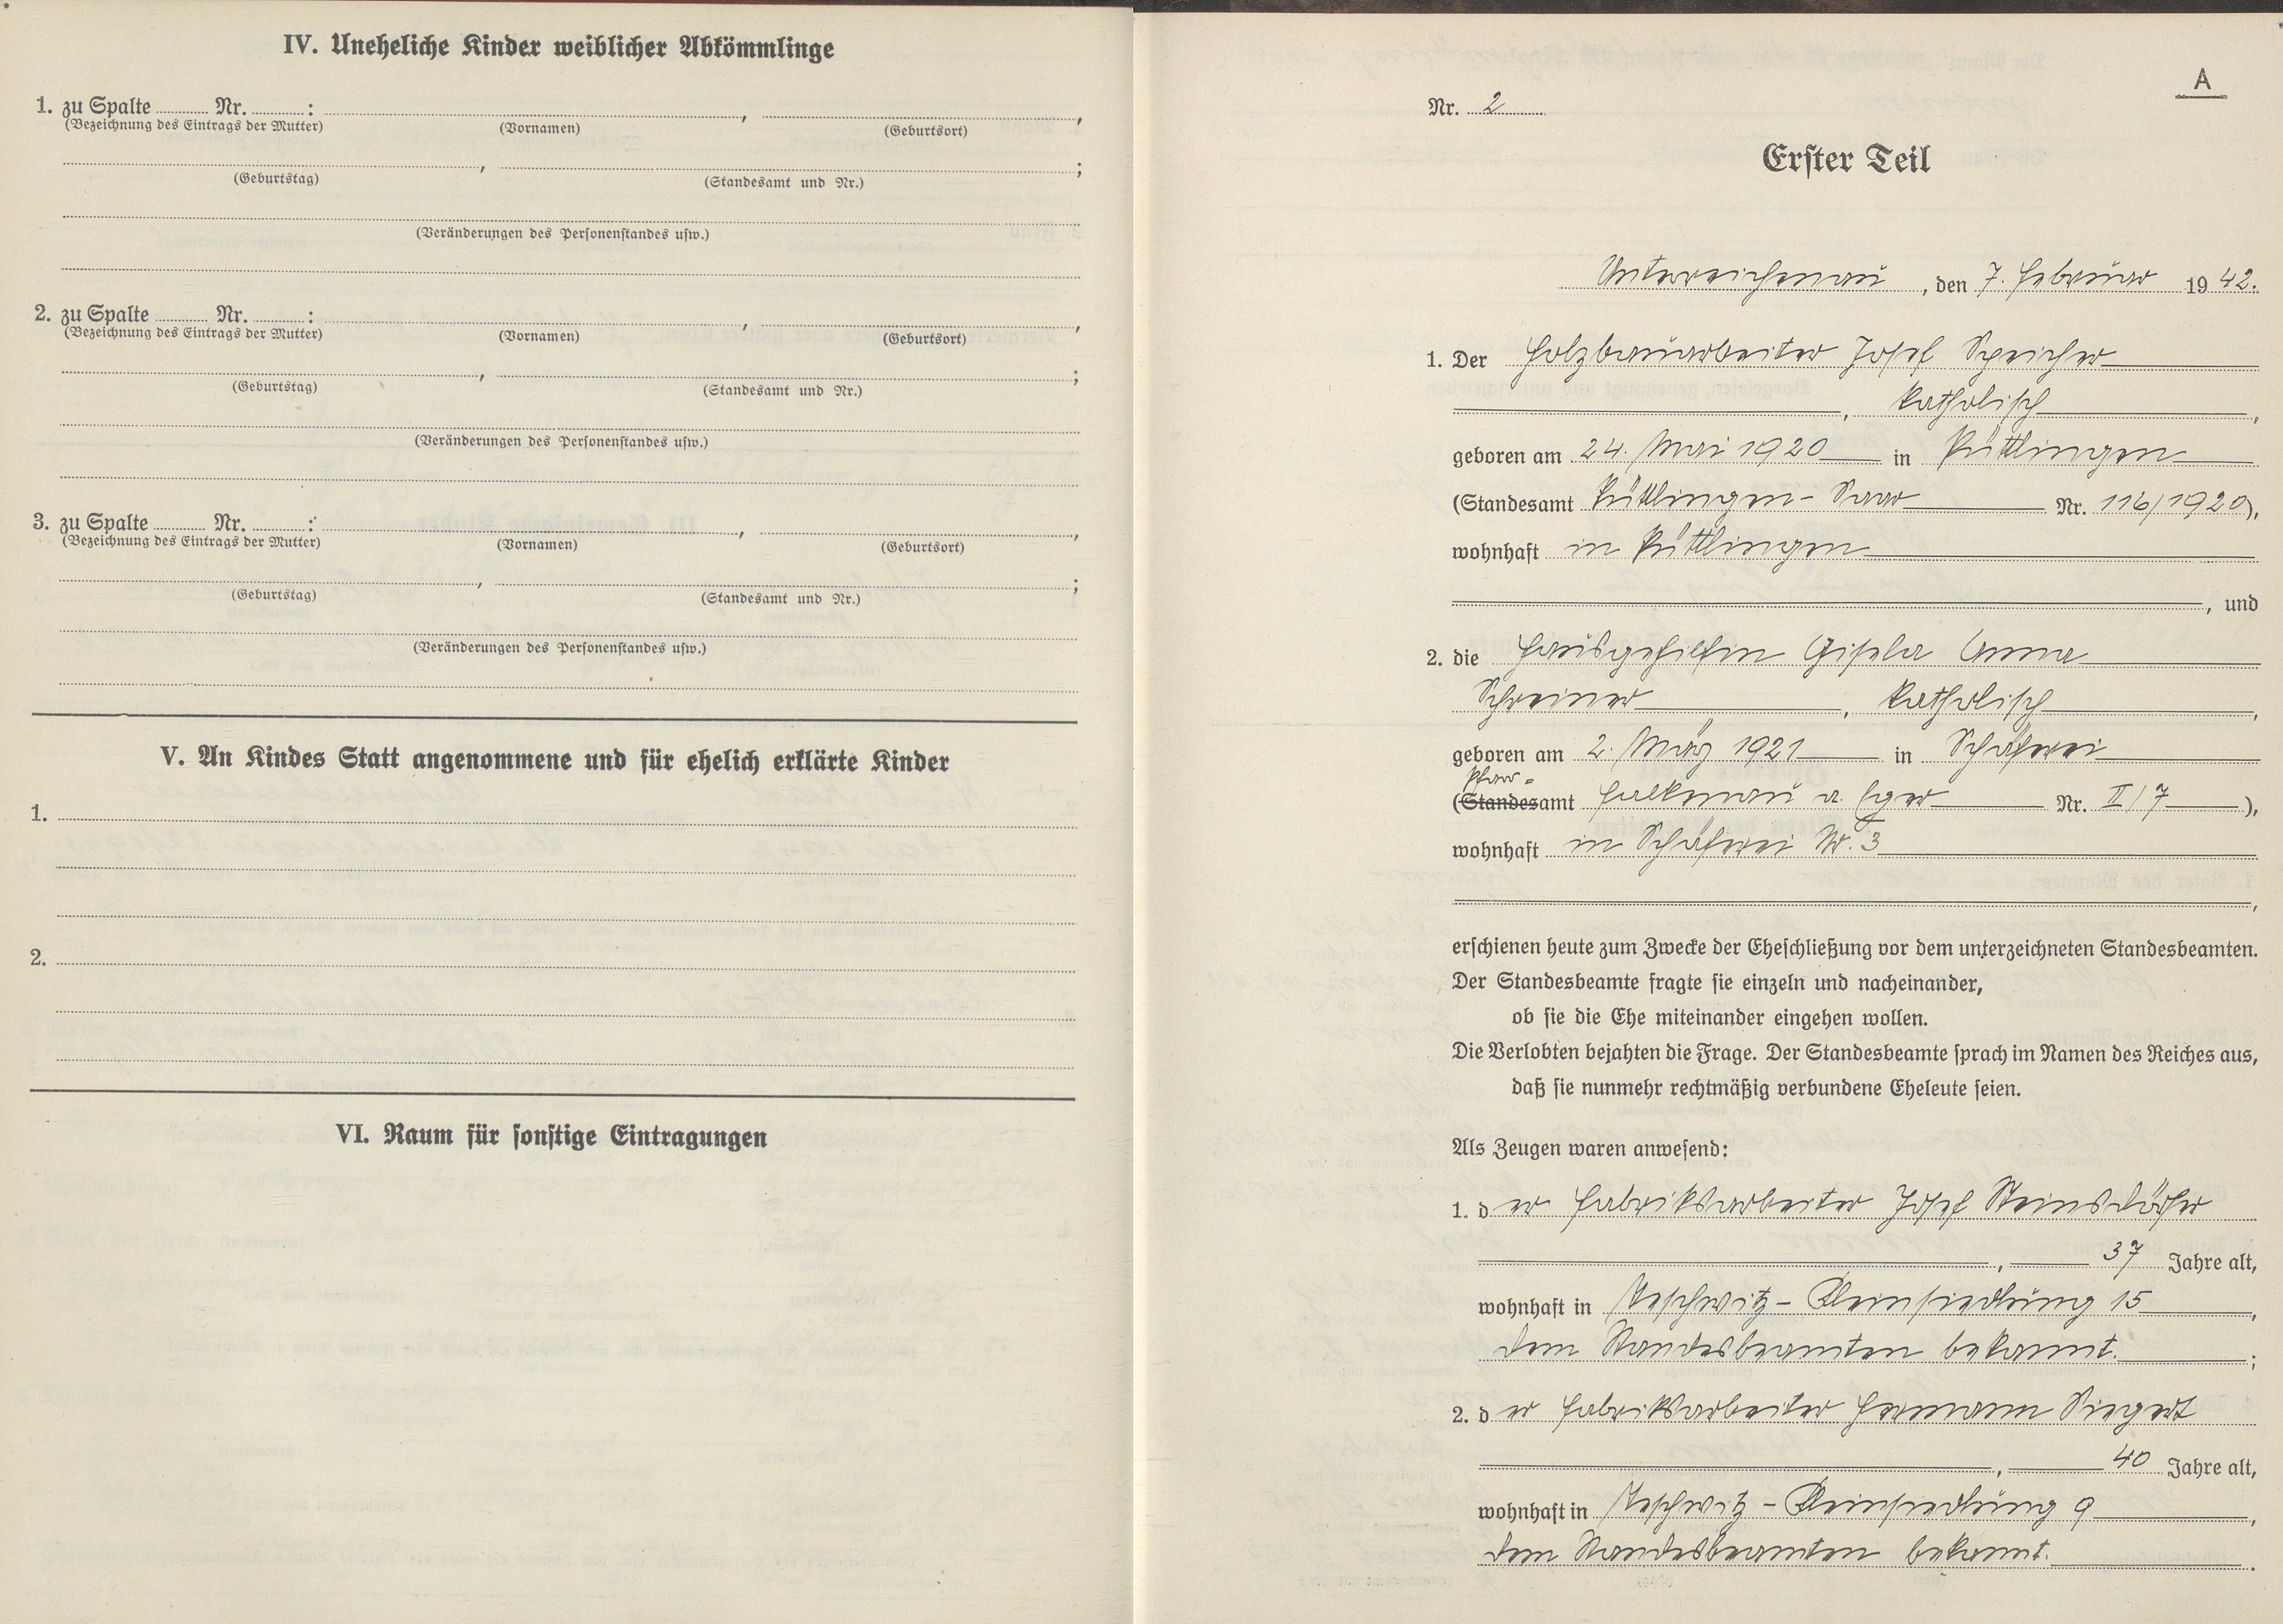 IV. Uneheliche Kinder weiblicher Abkömmlinge
1. zu Spalte ........ Nr. ........ : , ,
(Bezeichnung des Eintrags der Mutter) (Vornamen) (Geburtsort)
, ;
(Geburtstag) (Standesamt und Nr.)
(Veränderungen des Personenstandes usw.)
2. zu Spalte ........ Nr. ........ : , ,
(Bezeichnung des Eintrags der Mutter) (Vornamen) (Geburtsort)
, ;
(Geburtstag) (Standesamt und Nr.)
(Veränderungen des Personenstandes usw.)
3. zu Spalte ........ Nr. ........ : , ,
(Bezeichnung des Eintrags der Mutter) (Vornamen) (Geburtsort)
, ;
(Geburtstag) (Standesamt und Nr.)
(Veränderungen des Personenstandes usw.)
V. An Kindes Statt angenommene und für ehelich erklärte Kinder
1.
2.
VI. Raum für sonstige Eintragungen
A
Nr. 2
Erster Teil
Unterreichenau, den 7. Februar 1942.
1. Der Holzbauarbeiter Josef Speicher
, katholisch,
geboren am 24. Mai 1920 in Püttlingen
(Standesamt Püttlingen-Saar Nr. 116/1920),
wohnhaft in Püttlingen
, und
2. die Hausgehilfin Gisela Anna
Schreiner, katholisch,
geboren am 2. März 1921 in Schäferei
Pfarr=
(Standesamt Falkenau a. Eger Nr. II/7),
wohnhaft in Schäferei Nr. 3
,
erschienen heute zum Zwecke der Eheschließung vor dem unterzeichneten Standesbeamten.
Der Standesbeamte fragte sie einzeln und nacheinander,
ob sie die Ehe miteinander eingehen wollen.
Die Verlobten bejahten die Frage. Der Standesbeamte sprach im Namen des Reiches aus,
daß sie nunmehr rechtmäßig verbundene Eheleute seien.
Als Zeugen waren anwesend:
1. der Fabriksarbeiter Josef Steinsdörfer
, 37 Jahre alt,
wohnhaft in Teschwitz-Kleinsiedlung 15,
dem Standesbeamten bekannt.;
2. der Fabriksarbeiter Hermann Siegert
, 40 Jahre alt,
wohnhaft in Teschwitz-Kleinsiedlung 9,
dem Standesbeamten bekannt..